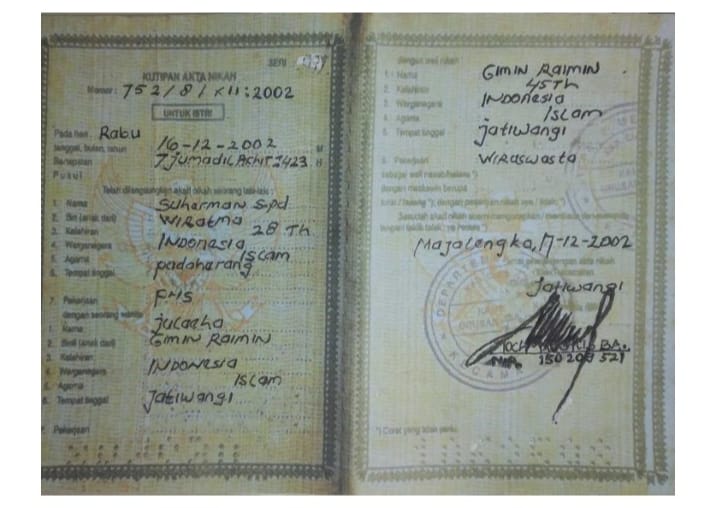 SERI
KUTIPAN AKTA NIKAH
Nomor: 752/81/XII:2002
UNTUK ISTRI
Pada hari, Rabu
tanggal, bulan, tahun 16-12-2002 M
Bertepatan 7 Jumadil Akhir 1423 H
Pukul
Telah dilangsungkan akad nikah seorang laki-laki:
1. Nama Suharman Spd
2. Bin (anak dari) Wiratma
3. Kelahiran 28 Th
4. Warganegara Indonesia
5. Agama Islam
6. Tempat tinggal padaharang
7. Pekerjaan PNS
dengan seorang wanita
1. Nama Julaeha
2. Binti (anak dari) Gimin Raimin
3. Kelahiran
4. Warganegara Indonesia
5. Agama Islam
6. Tempat tinggal Jatiwangi
7. Pekerjaan
dengan wali nikah
1. Nama Gimin Raimin
2. Kelahiran 45Th
3. Warganegara Indonesia
4. Agama Islam
5. Tempat tinggal jatiwangi
6. Pekerjaan Wiraswasta
sebagai wali nasab/hakim *)
dengan maskawin berupa
tunai / hutang *); dengan perjanjian nikah
Sesudah akad nikah suami mengucapkan / membaca
Majalengka, 17-12-2002
Jatiwangi
BA.
NIP. 150 208 521
*) Coret yang tidak perlu